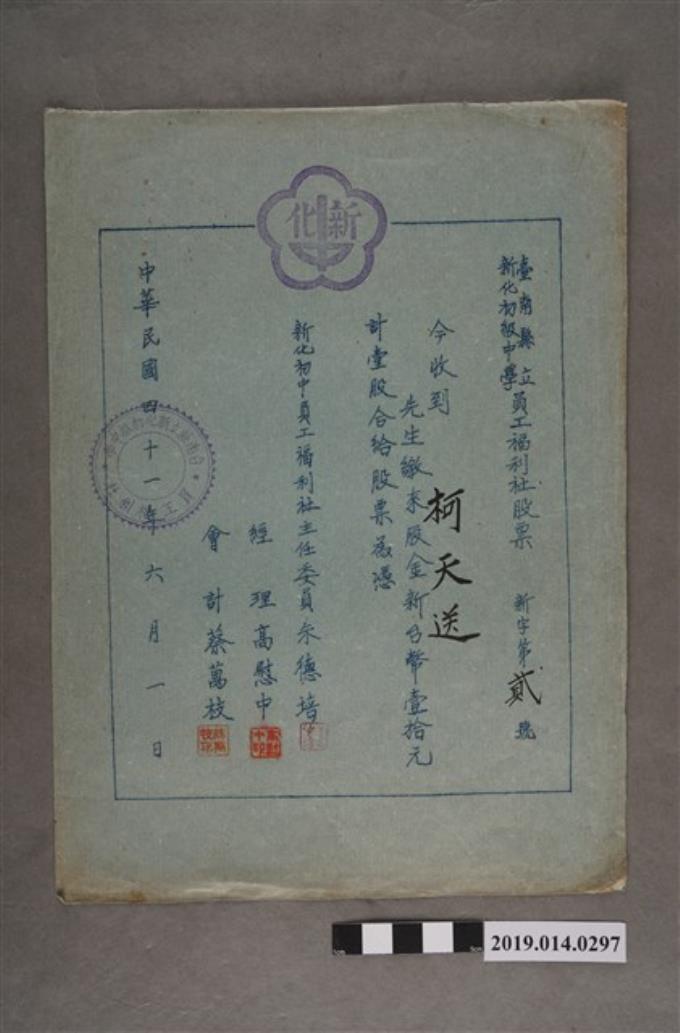 新化
中
臺南縣立
新化初級中學
員工福利社股票
新字第貳號
今收到
柯天送
先生繳來股金新台幣壹拾元
計壹股合給股票為憑
新化初中員工福利社主任委員朱德培
經理高慰中
會計蔡萬枝
中華民國四十一年六月一日
2019.014.0297